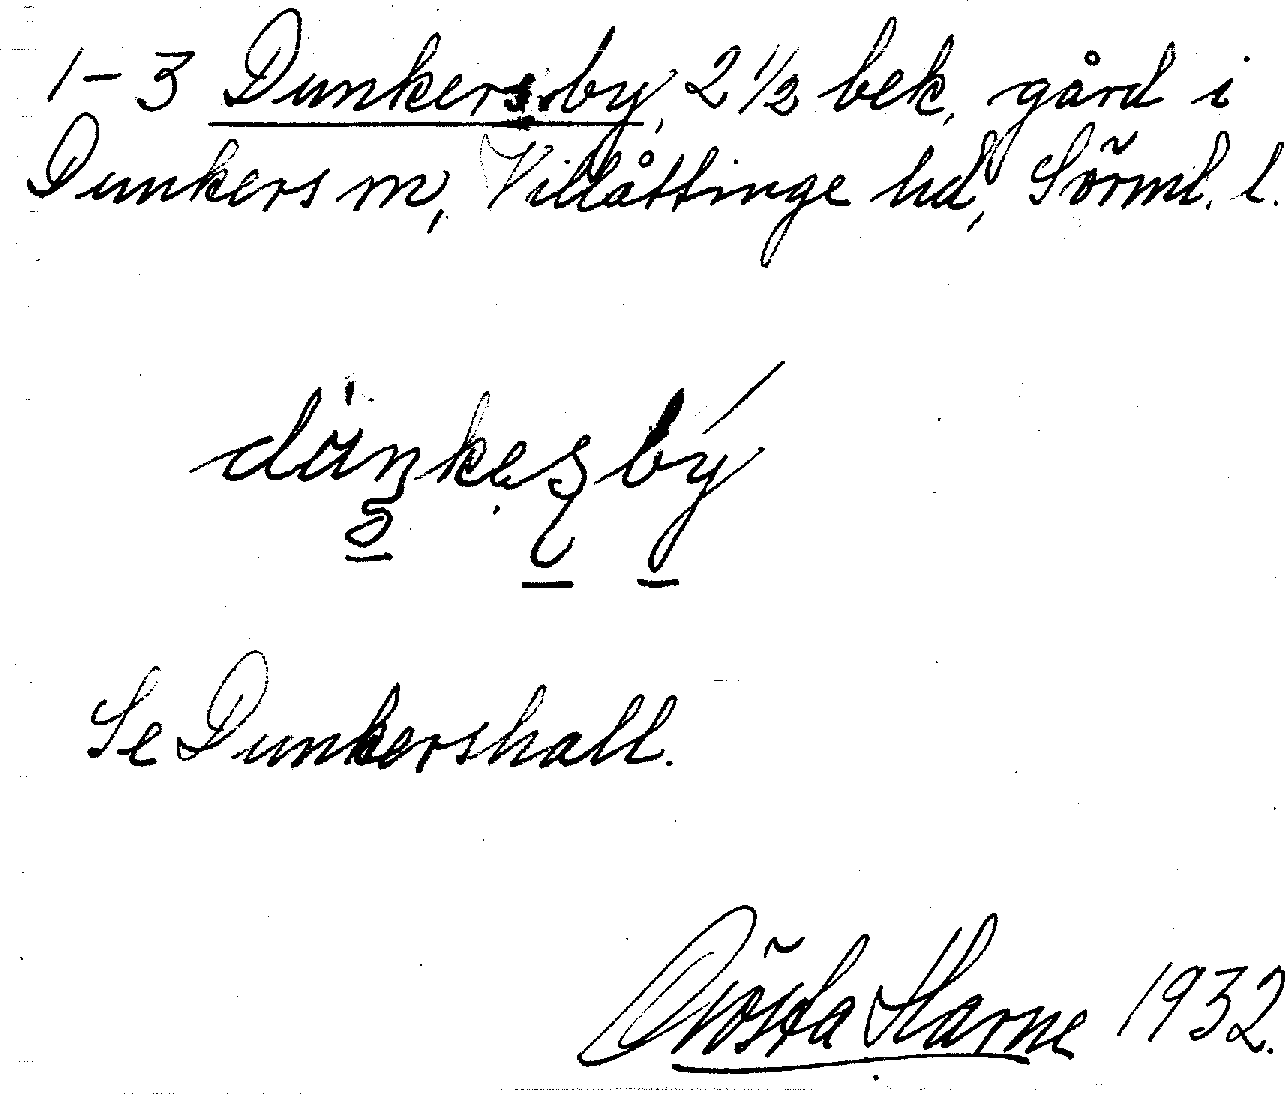 1-3 Dunkersby, 2 1/2 bek. gård i
Dunkers sn, Villåttinge hd, Sörml. l.
Se Dunkershall.
Gösta Harne 1932.